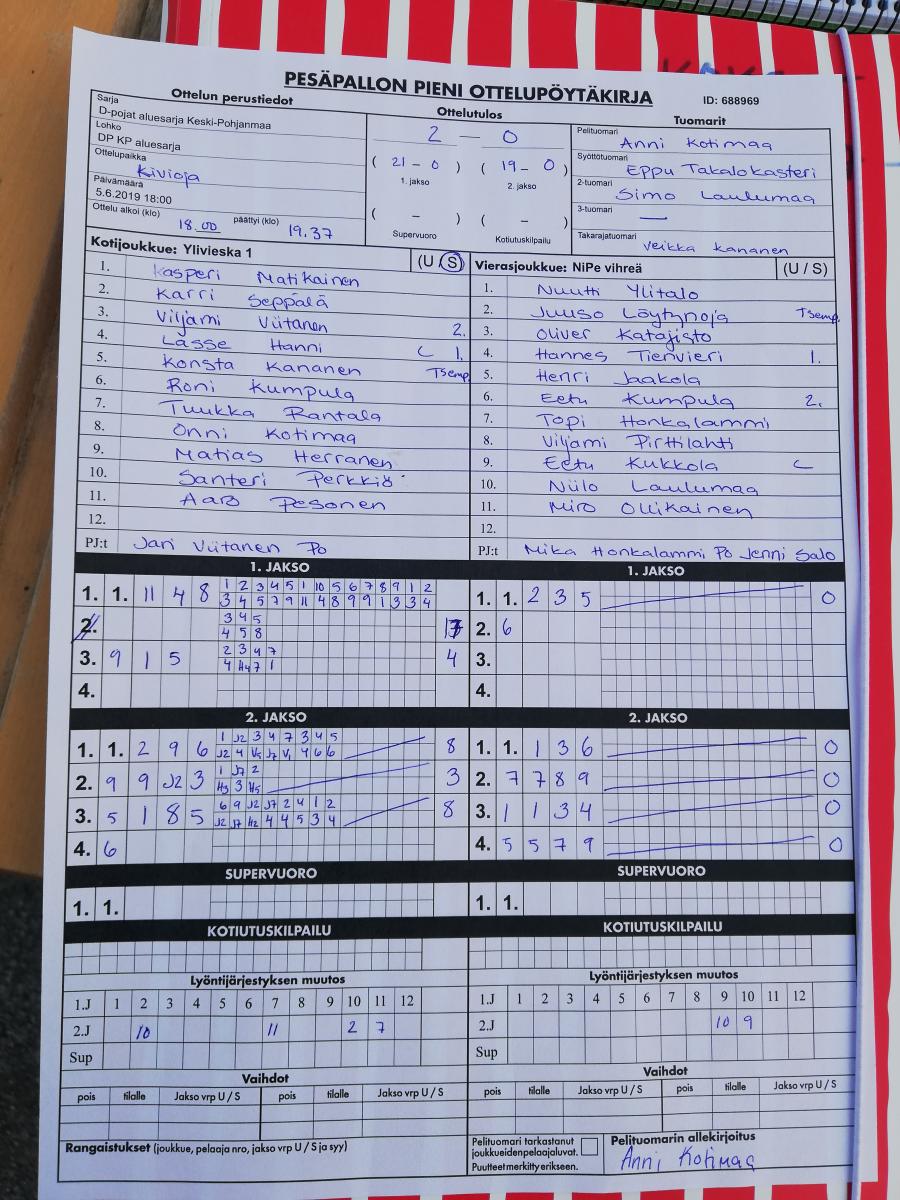 PESÄPALLON PIENI OTTELUPÖYTÄKIRJA
ID: 688969
Ottelun perustiedot
Sarja
D-pojat aluesarja Keski-Pohjanmaa
Lohko
DP KP aluesarja
Ottelupaikka
Kivioja
Päivämäärä
5.6.2019 18:00
Ottelu alkoi (klo) 18.00 päättyi (klo) 19.37
Ottelutulos
2 – 0
( 21 – 0 ) ( 19 – 0 )
1. jakso 2. jakso
( – ) ( – )
Supervuoro Kotiutuskilpailu
Tuomarit
Pelituomari
Anni Kotimaa
Syöttötuomari
Eppu Takalokasteri
2-tuomari
Simo Laulumaa
3-tuomari —
Takarajatuomari
Veikka Kananen
Kotijoukkue: Ylivieska 1 (U / S)
1. Kasperi Matikainen
2. Karri Seppälä
3. Viljami Viitanen 2.
4. Lasse Hanni C 1.
5. Konsta Kananen Tsemp.
6. Roni Kumpula
7. Tuukka Rantala
8. Onni Kotimaa
9. Matias Herranen
10. Santeri Perkkiö
11. Aaro Pesonen
12.
PJ:t Jari Viitanen Po
Vierasjoukkue: NiPe vihreä (U / S)
1. Nuutti Ylitalo
2. Juuso Löytynoja Tsemp.
3. Oliver Katajisto
4. Hannes Tienvieri 1.
5. Henri Jaakola
6. Eetu Kumpula 2.
7. Topi Honkalammi
8. Viljami Pirttilahti
9. Eetu Kukkola C
10. Niilo Laulumaa
11. Miro Ollikainen
12.
PJ:t Mika Honkalammi Po Jenni Salo
1. JAKSO
1. 1. 11 4 8 1 2 3 4 5 1 10 5 6 7 8 9 1 2
3 4 5 7 9 11 4 8 9 9 1 3 3 4
2. 3 4 5
4 5 8
3. 9 1 5 2 3 4 7 4
4 H4 7 1
4.
1. JAKSO
1. 1. 2 3 5 0
2. 6
3.
4.
2. JAKSO
1. 1. 2 9 6 1 J2 3 4 7 3 4 5 8
J2 4 V5 J7 V1 4 6 6
2. 9 9 J2 3 1 J7 2 3
H3 3 H5
3. 5 1 8 5 6 9 J2 J7 2 4 1 2 8
J2 J7 H2 4 4 5 3 4
4. 6
2. JAKSO
1. 1. 1 3 6 0
2. 7 7 8 9 0
3. 1 1 3 4 0
4. 5 5 7 9 0
SUPERVUORO
1. 1.
SUPERVUORO
1. 1.
KOTIUTUSKILPAILU
KOTIUTUSKILPAILU
Lyöntijärjestyksen muutos
1.J 1 2 3 4 5 6 7 8 9 10 11 12
2.J 10 11 2 7
Sup
Lyöntijärjestyksen muutos
1.J 1 2 3 4 5 6 7 8 9 10 11 12
2.J 10 9
Sup
Vaihdot
pois tilalle Jakso vrp U / S pois tilalle Jakso vrp U / S
Vaihdot
pois tilalle Jakso vrp U / S pois tilalle Jakso vrp U / S
Rangaistukset (joukkue, pelaaja nro, jakso vrp U / S ja syy)
Pelituomari tarkastanut
joukkueidenpelaajaluvat.
Puutteet merkitty erikseen.
Pelituomarin allekirjoitus
Anni Kotimaa